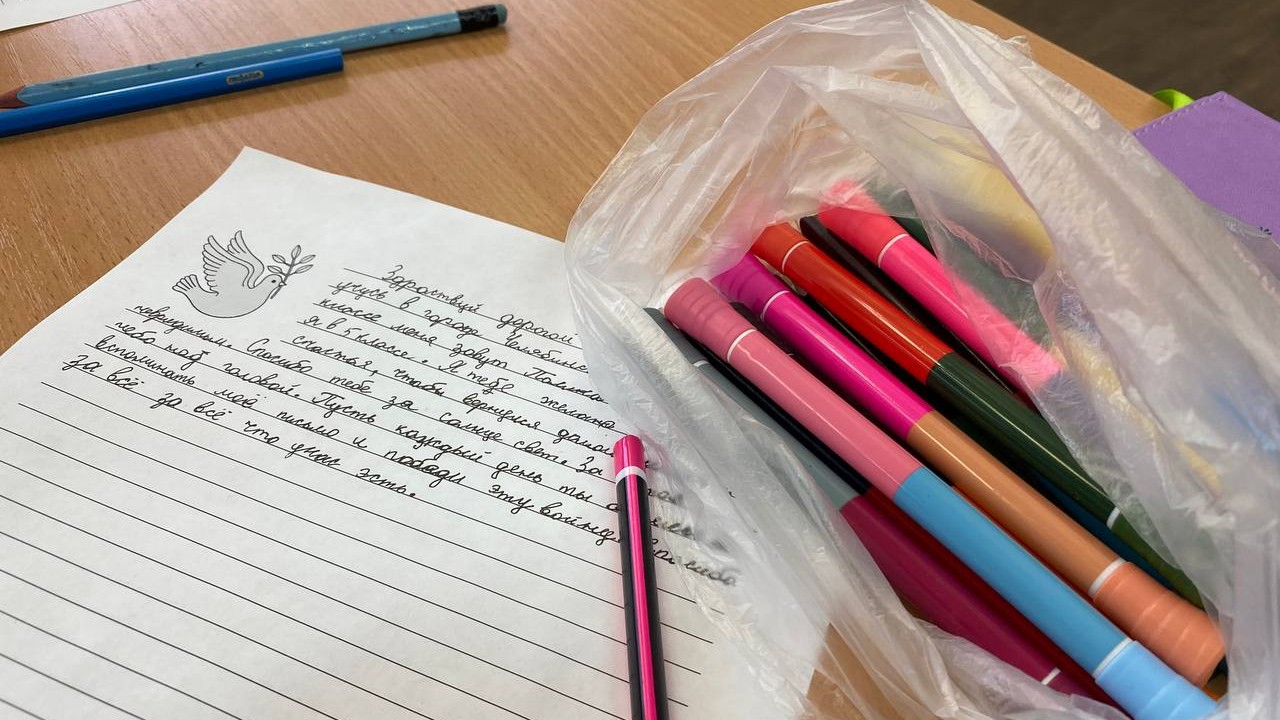 Здраствуй дорогой
учусь в городе
меня зовут Полина
я в 5 классе. Я тебе желаю
счастья, чтобы вернулся
невридимым. Спасибо тебе за солнце свет. За
небо над головой. Пусть каждый день ты
вспоминать моё письмо и победи эту войну.
за всё за всё что у нас есть.